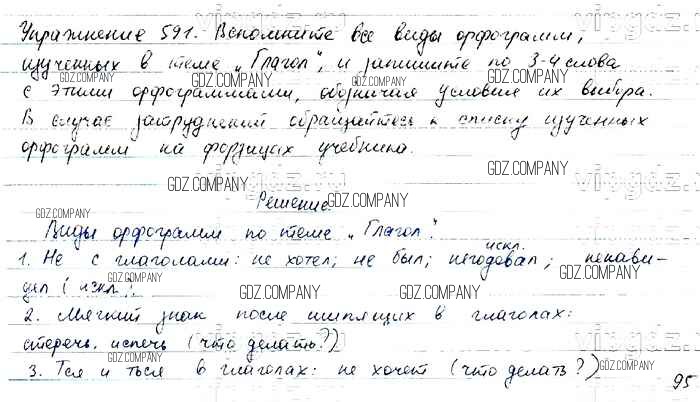 Упражнение 591. Вспомните все виды орфограмм,
изученных в теме „Глагол", и запишите по 3-4 слова
с этими орфограммами, обозначая условия их выбора.
В случае затруднений обращайтесь к списку изученных
орфограмм на форзацах учебника.
Решение.
Виды орфограмм по теме „Глагол".
1. Не с глаголами: не хотел; не был; негодовал (искл.); ненави-
дел (искл.).
2. Мягкий знак после шипящих в глаголах:
стеречь, испечь (что делать?)
3. Тся и ться в глаголах: не хочет (что делать?)
95
GDZ.COMPANY
vipgdz.ru